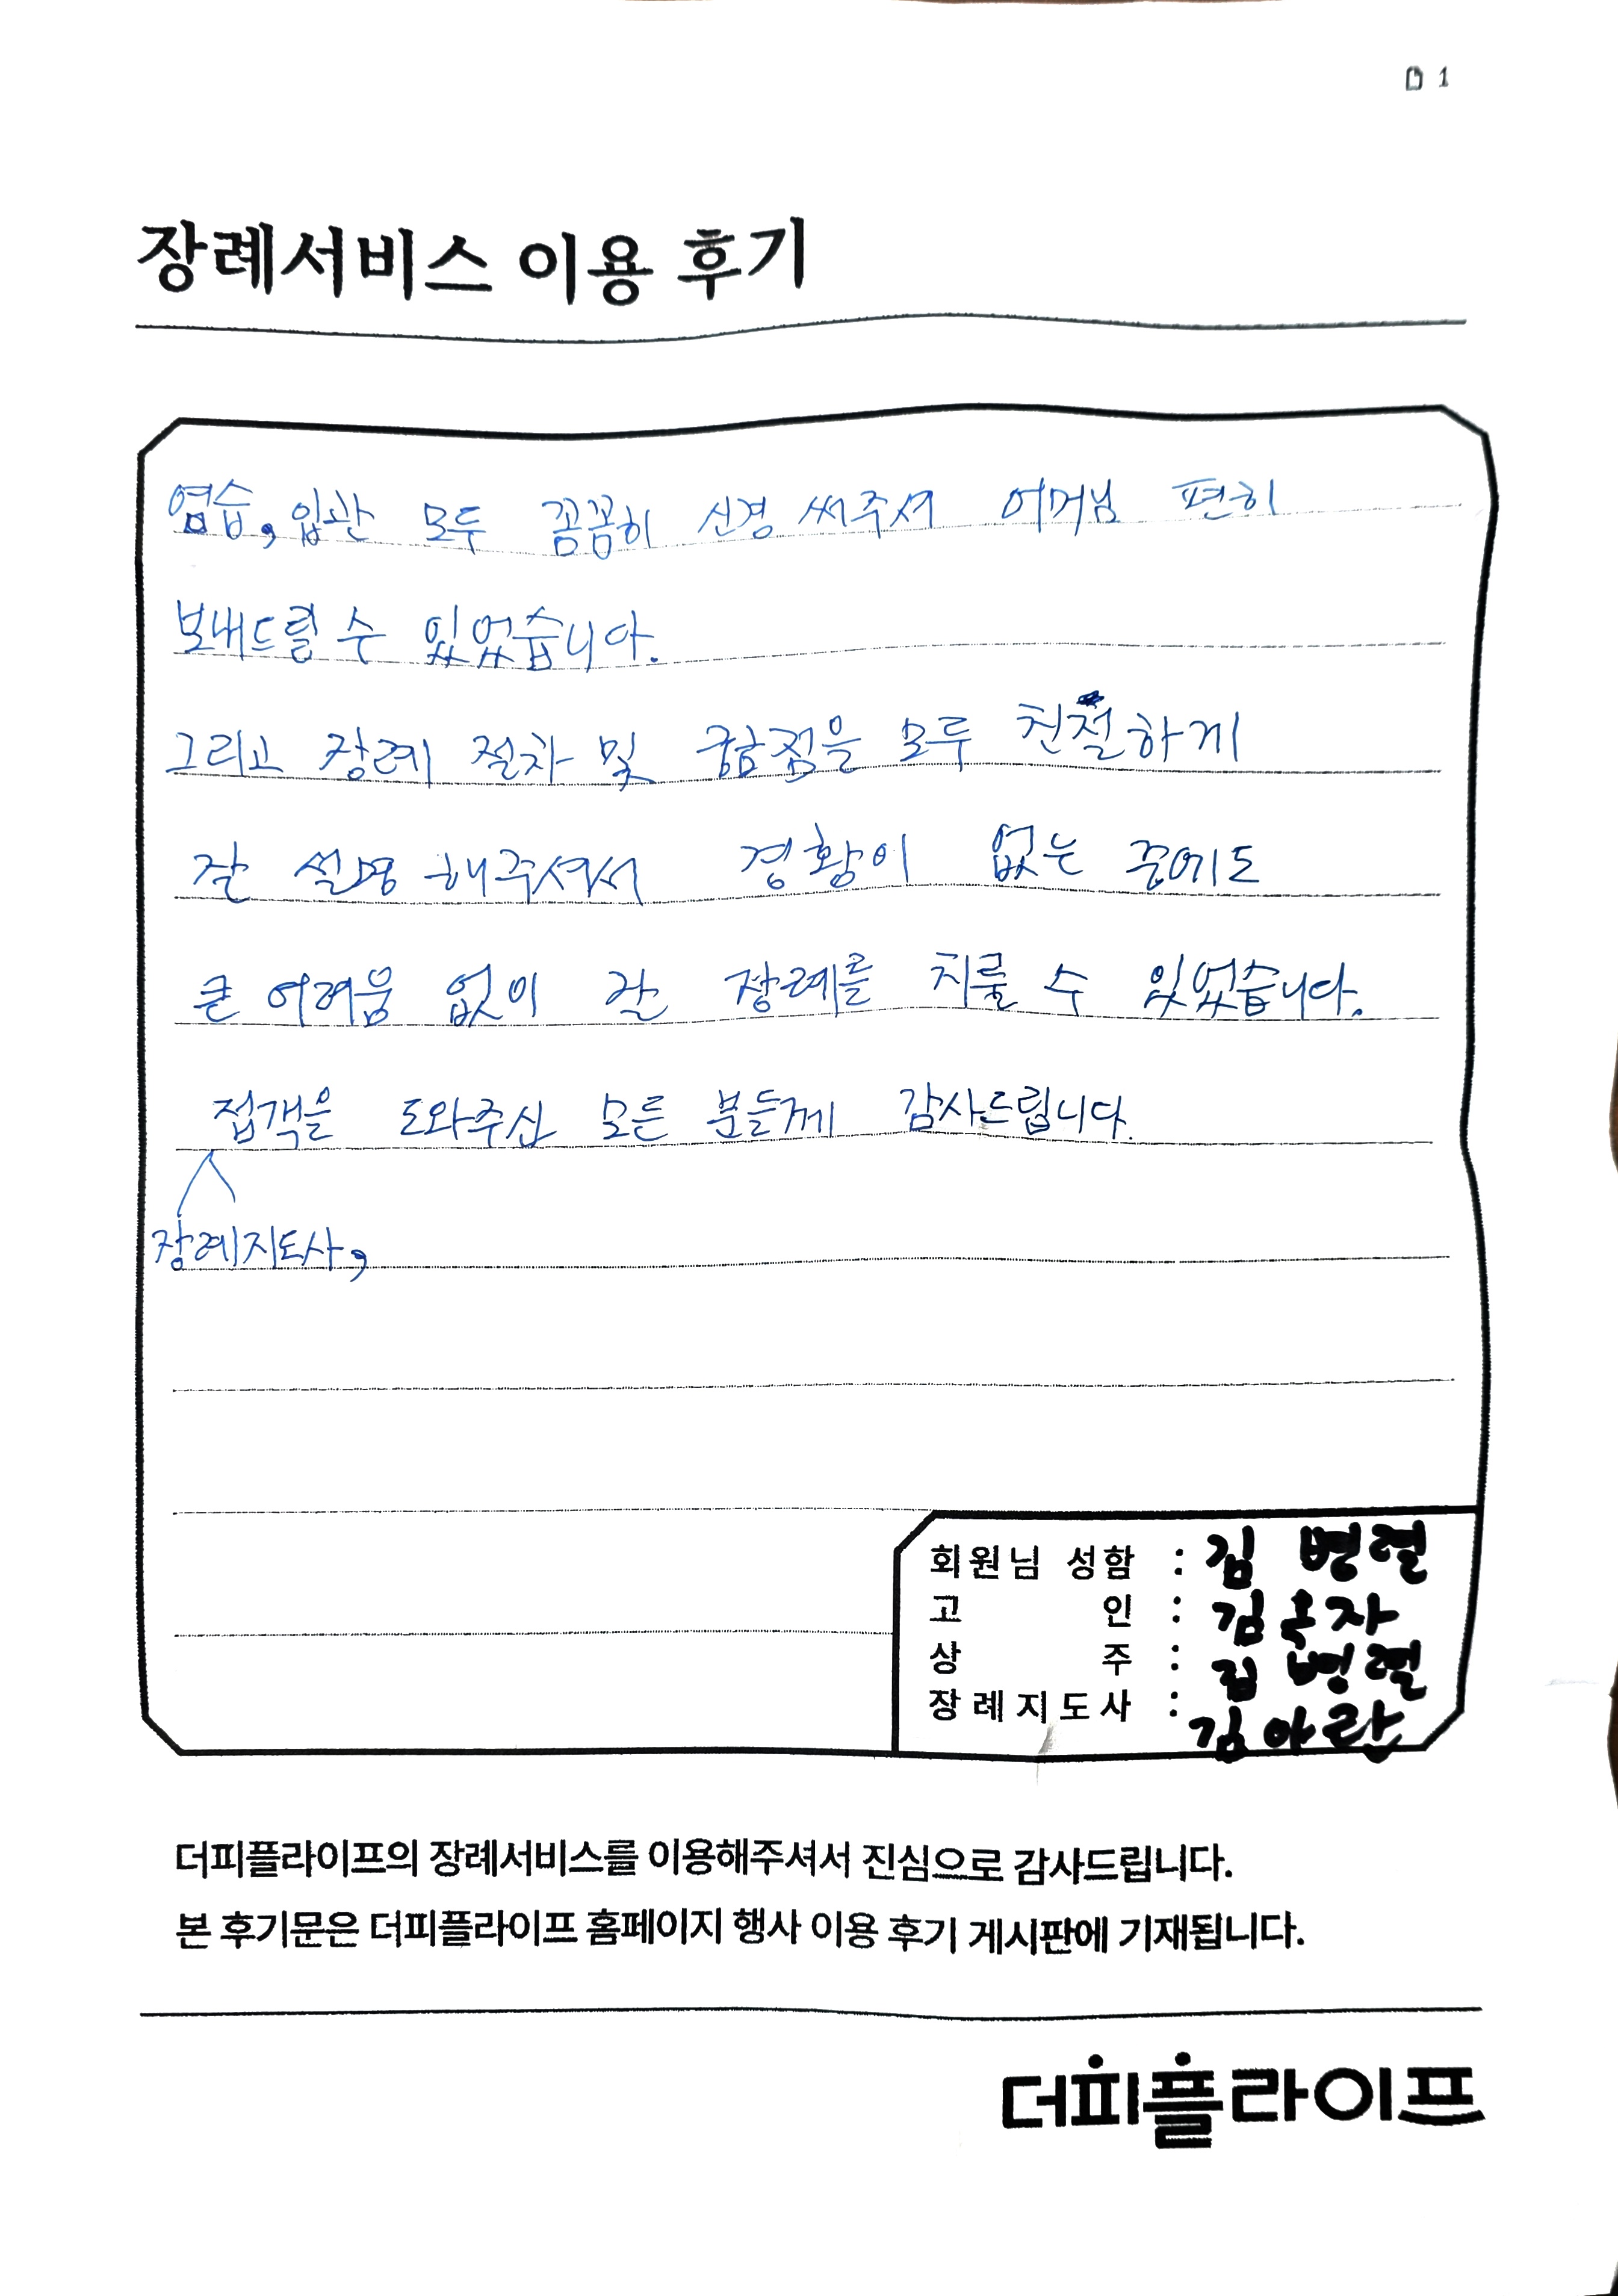 1
장례서비스 이용 후기
염습, 입관 모두 꼼꼼히 신경 써주셔 어머님 편히
보내드릴 수 있었습니다.
그리고 장례 절차 및 궁금점을 모두 친절하게
잘 설명 해주셔서 경황이 없는 중에도
큰 어려움 없이 잘 장례를 치룰 수 있었습니다.
접객을 도와주신 모든 분들께 감사드립니다.
장례지도사,
회원님 성함 : 김병렬
고인 : 김옥자
상주 : 김병렬
장례지도사 : 김아란
더피플라이프의 장례서비스를 이용해주셔서 진심으로 감사드립니다.
본 후기문은 더피플라이프 홈페이지 행사 이용 후기 게시판에 기재됩니다.
더피플라이프